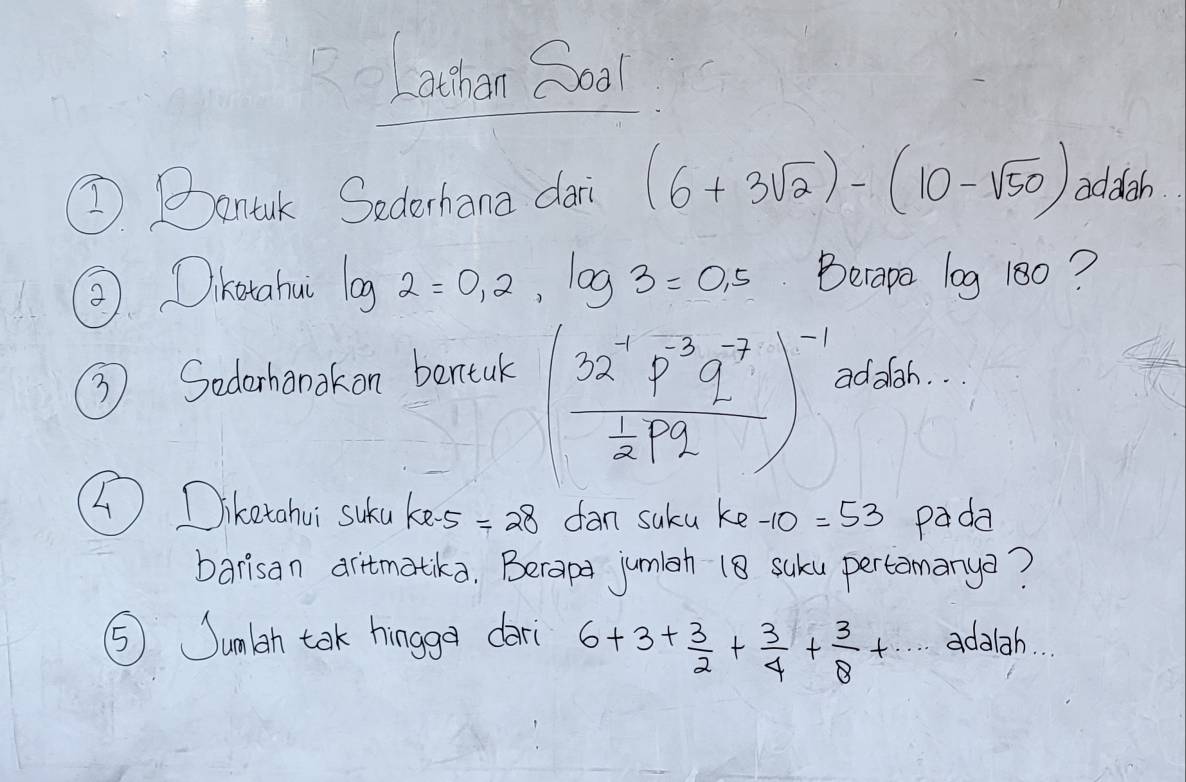 Latihan Soal
① Bentuk Sederhana dari (6 + 3√2) - (10 - √50) adalah..
② Diketahui log 2 = 0,2 , log 3 = 0,5 . Berapa log 180 ?
③ Sederhanakan bentuk (32⁻¹ p⁻³ q⁻⁷ / ½ pq)⁻¹ adalah...
④ Diketahui suku ke-5 = 28 dan suku ke-10 = 53 pada
barisan aritmatika. Berapa jumlah 18 suku pertamanya ?
⑤ Jumlah tak hingga dari 6 + 3 + 3/2 + 3/4 + 3/8 + .... adalah...